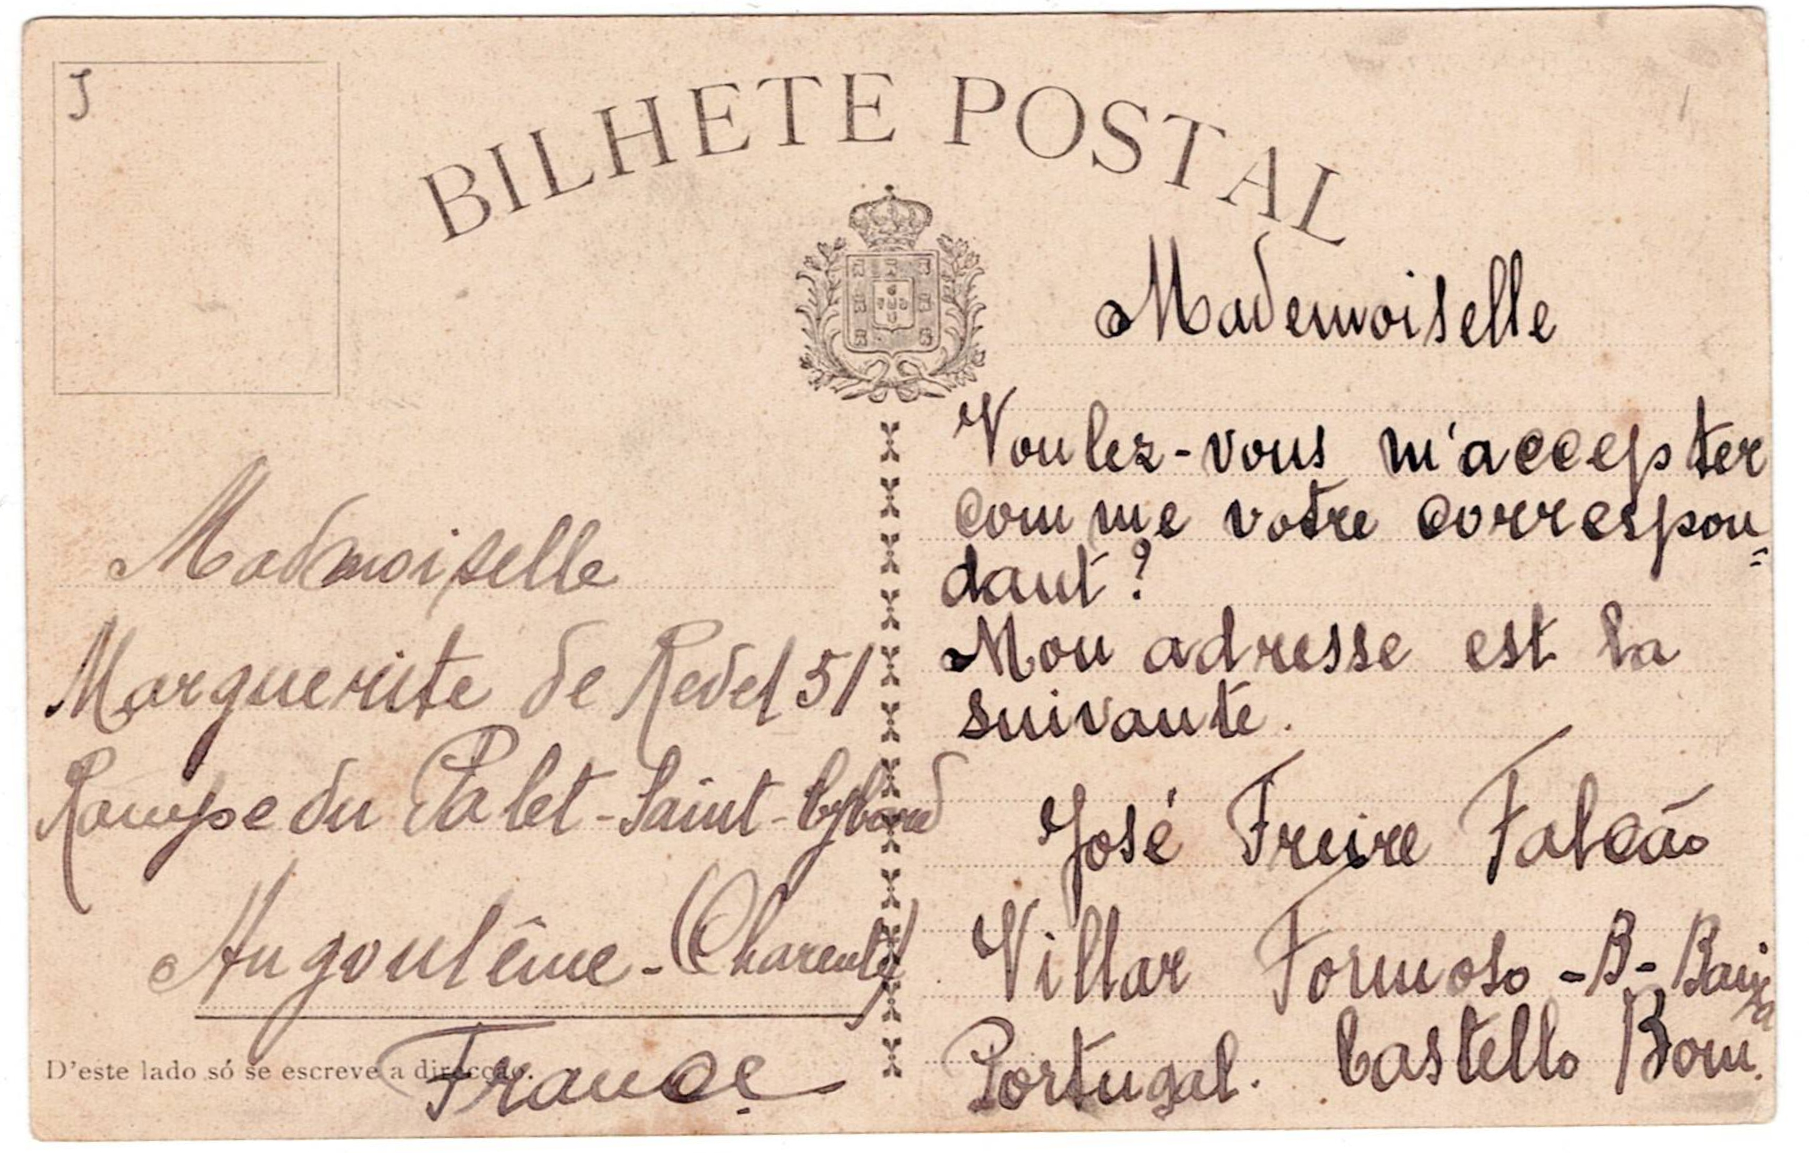 J
BILHETE POSTAL
Mademoiselle
Voulez-vous m'accepter
comme votre correspon=
dant?
Mon adresse est la
suivante.
José Freire Falcão
Villar Formoso - B - Baixa
Portugal. Castello Bom.
Madmoiselle
Marguerite de Redel 51
Rampe du Palet - Saint - Cybard
Angoulême - (Charente)
France
D'este lado só se escreve a direcção.